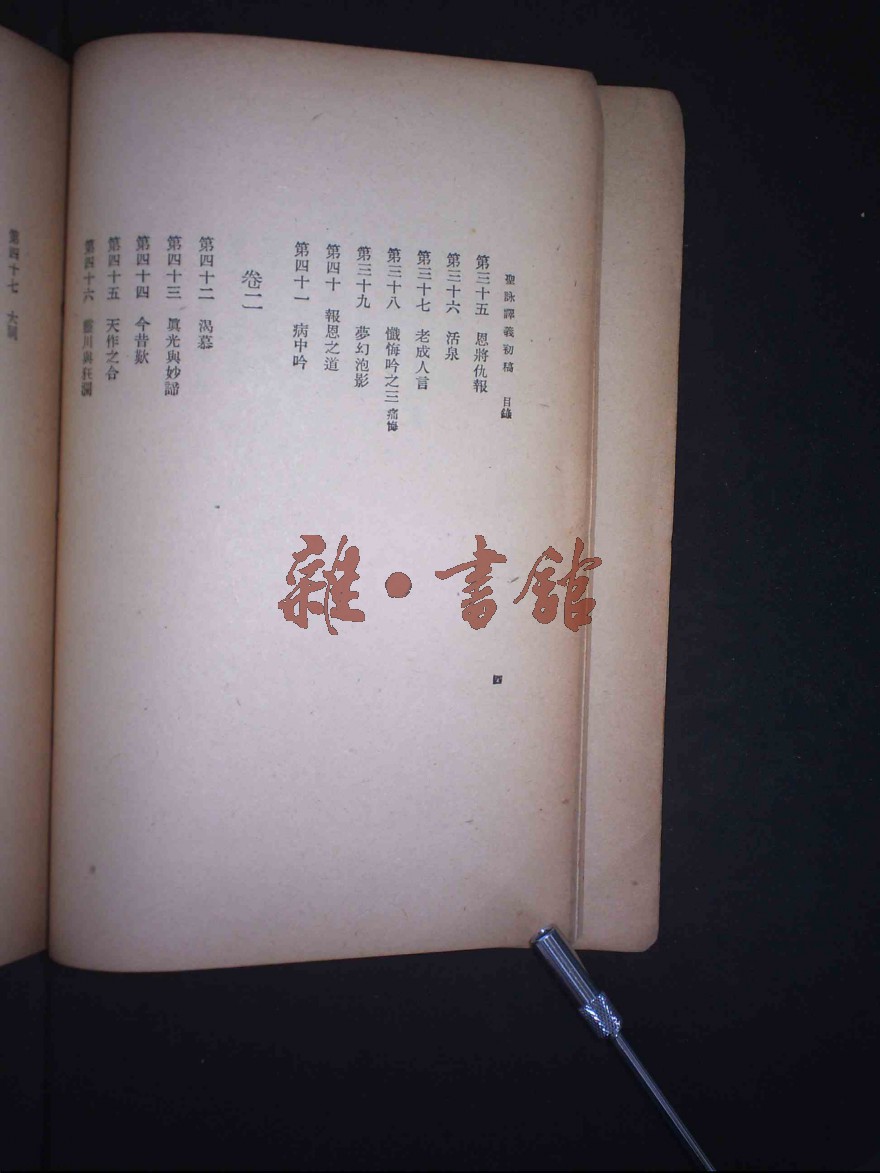 聖詠譯義初稿 目錄
第三十五 恩將仇報
第三十六 活泉
第三十七 老成人言
第三十八 懺悔吟之三 痛悔
第三十九 夢幻泡影
第四十 報恩之道
第四十一 病中吟
卷二
第四十二 渴慕
第四十三 眞光與妙諦
第四十四 今昔歎
第四十五 天作之合
第四十六 靈川與狂瀾
第四十七 大
雜·書館